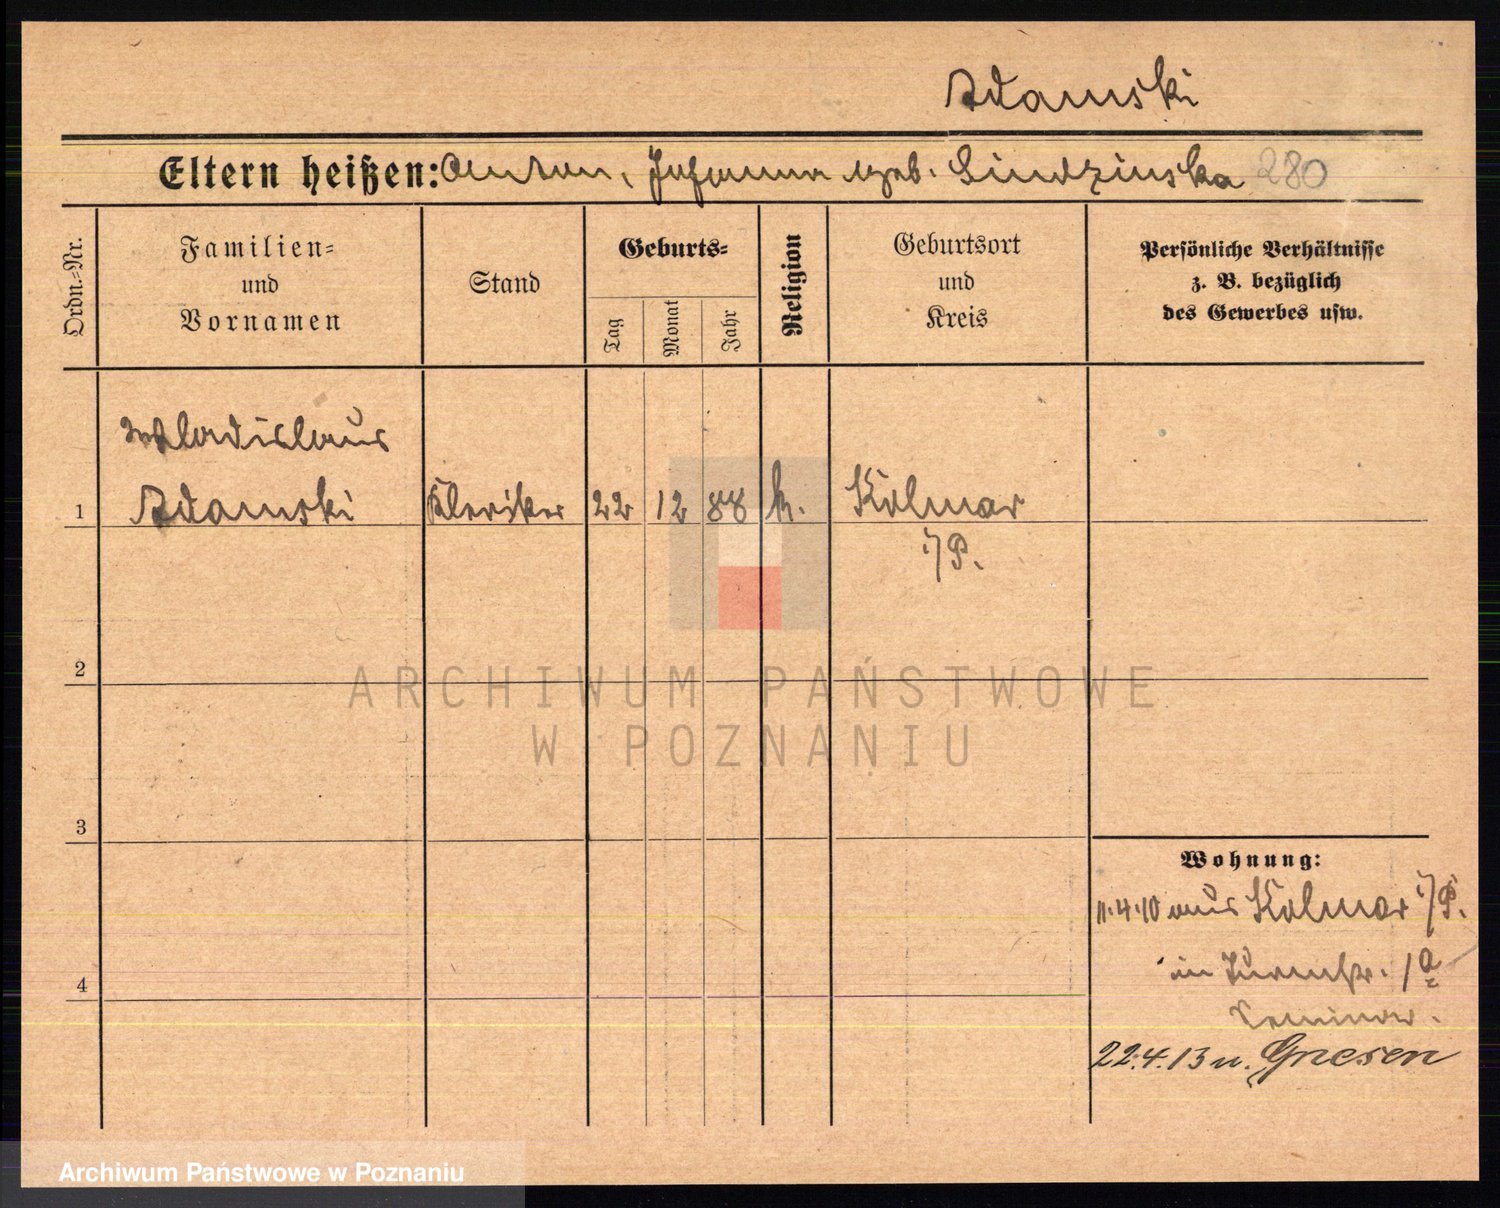 Adamski
Eltern heißen: Anton, Johanna geb. Lindzinska 280
Ordn.-Nr.
Familien-
und
Vornamen
Stand
Geburts-
Tag
Monat
Jahr
Religion
Geburtsort
und
Kreis
Persönliche Verhältnisse
z. B. bezüglich
des Gewerbes usw.
Wladislaus
1 Adamski Kleriker 22 12 88 k. Kolmar
i/P.
2
ARCHIWUM PAŃSTWOWE
W POZNANIU
3
Wohnung:
11.4.10 aus Kolmar i/P.
in Turmstr. 1a
4
Seminar.
22.4.13 n. Gnesen
Archiwum Państwowe w Poznaniu